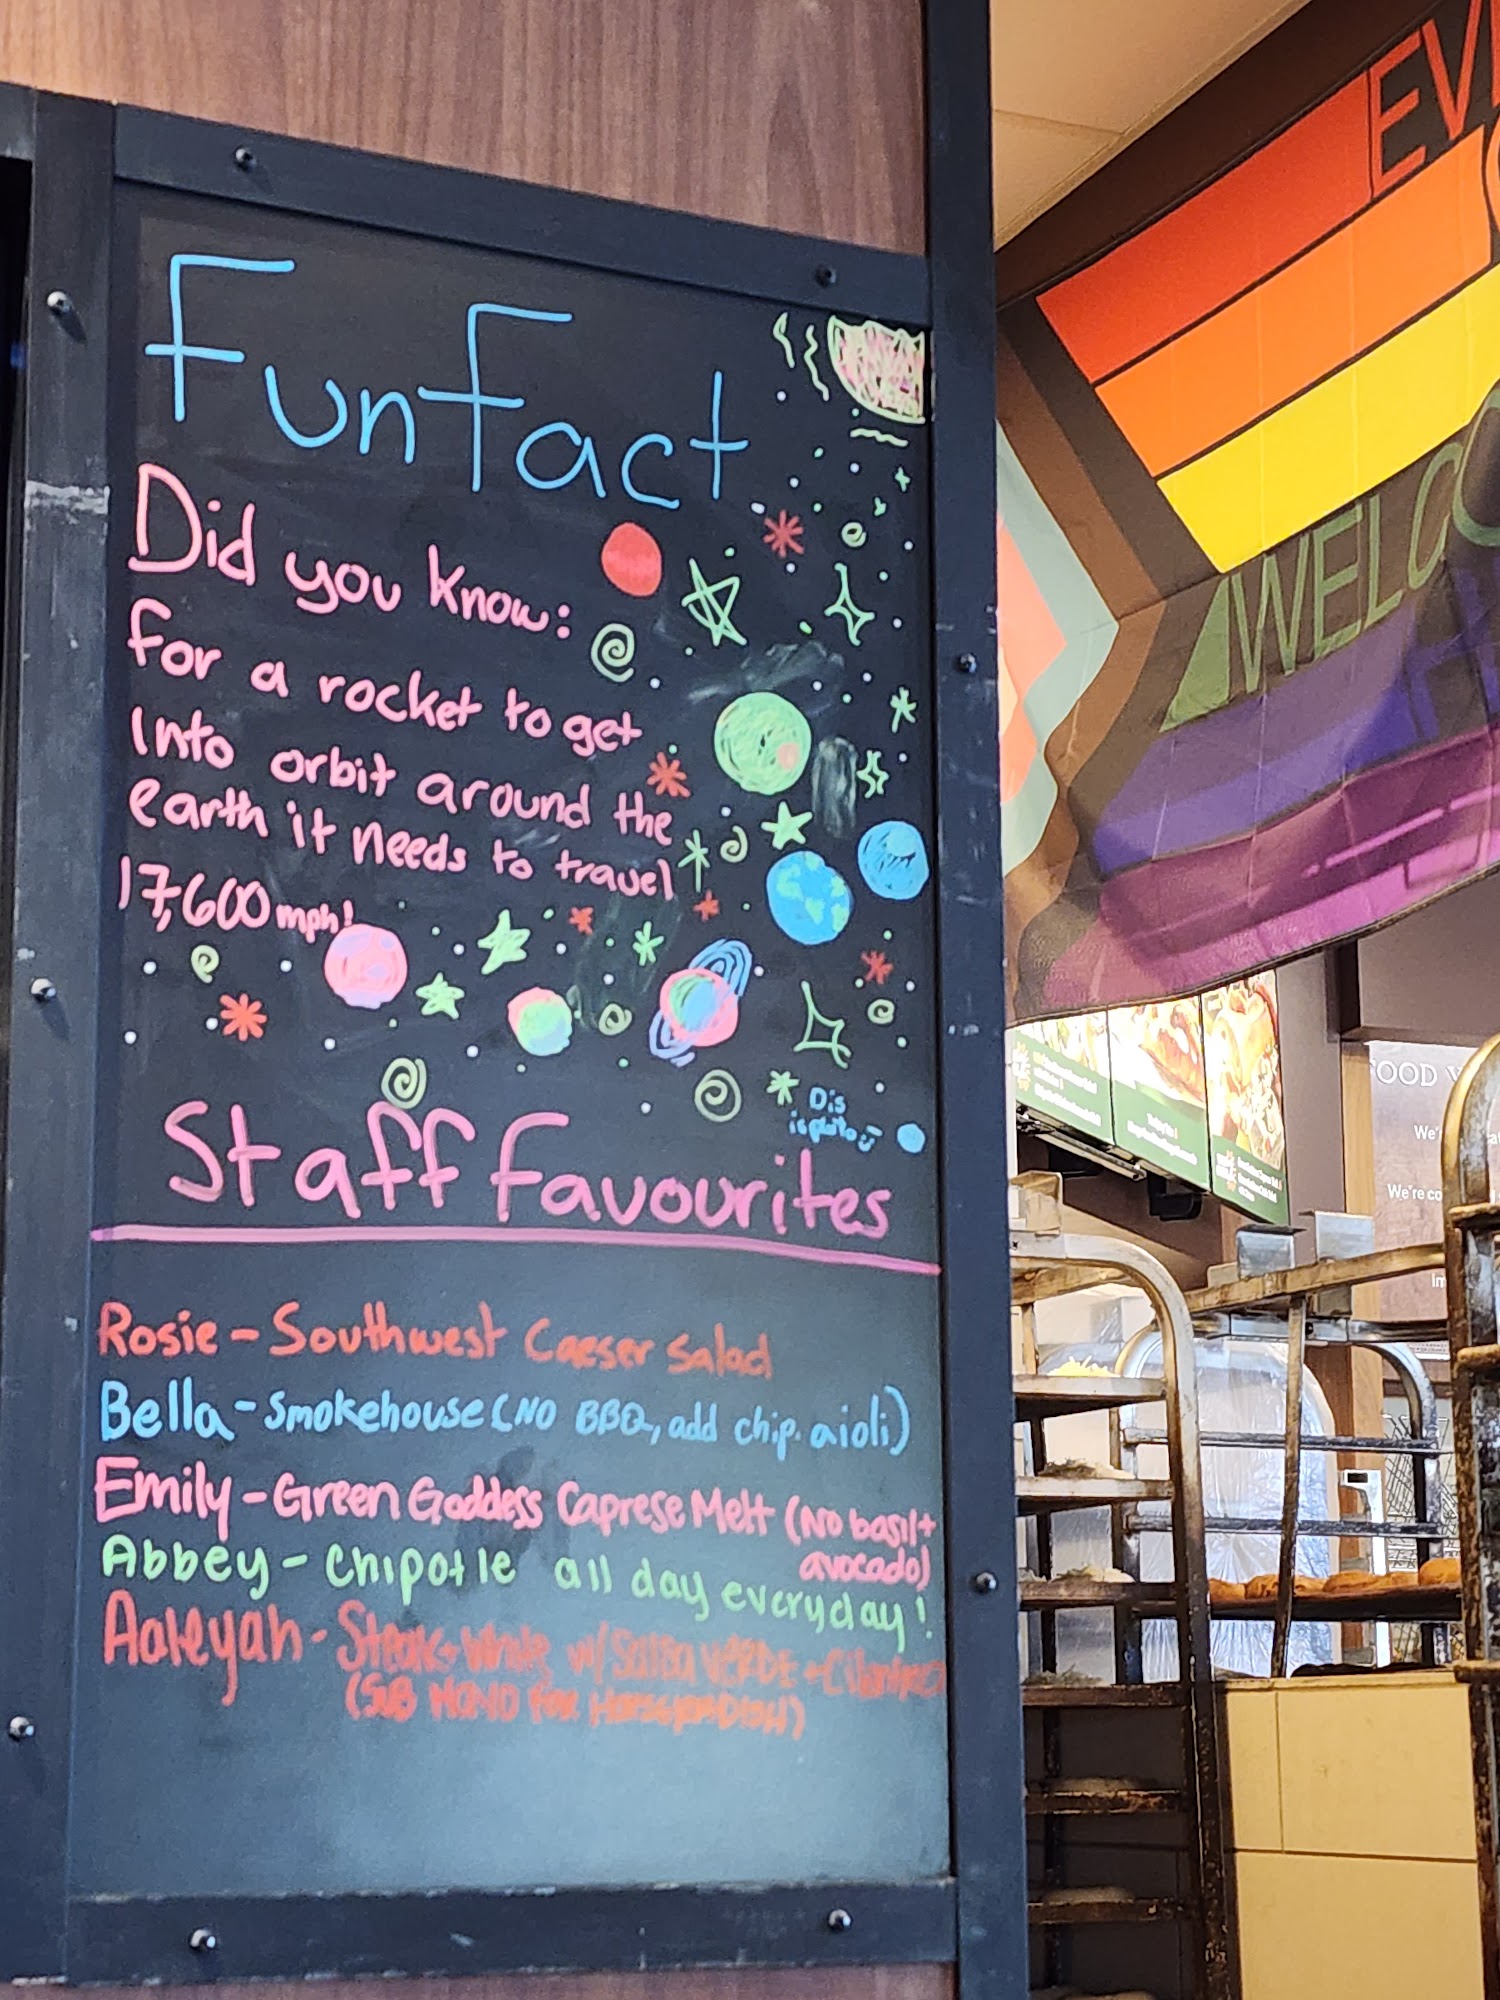 Fun Fact
Did you know:
for a rocket to get
into orbit around the
earth it needs to travel
17,600 mph!
Dis
is pluto
Staff Favourites
Rosie - Southwest Caeser Salad
Bella - Smokehouse (NO BBQ, add chip. aioli)
Emily - Green Goddess Caprese Melt (No basil +
avocado)
Abbey - Chipotle all day everyday!
Aaleyah - Steak + White w/ Salsa VERDE + Cilantro
(SUB MAYO FOR HORSERADISH)
WELCO
OOD
We're co